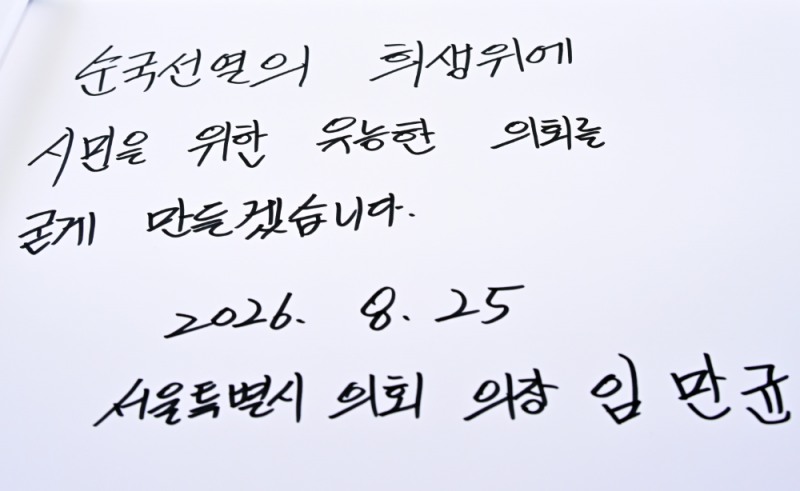 순국선열의 희생위에
시민을 위한 유능한 의회를
굳게 만들겠습니다.
2026. 8. 25
서울특별시 의회 의장 임만균